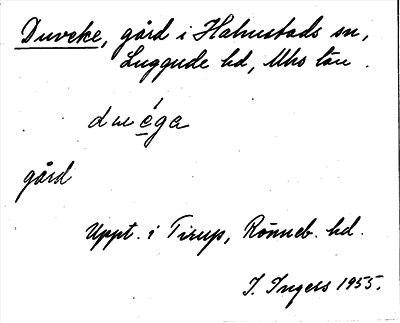 Duveke, gård i Halmstads sn,
Luggude hd, Mhs län.
duéga
gård
Uppt. i Tirup, Rönneb. hd.
I. Ingers 1955.